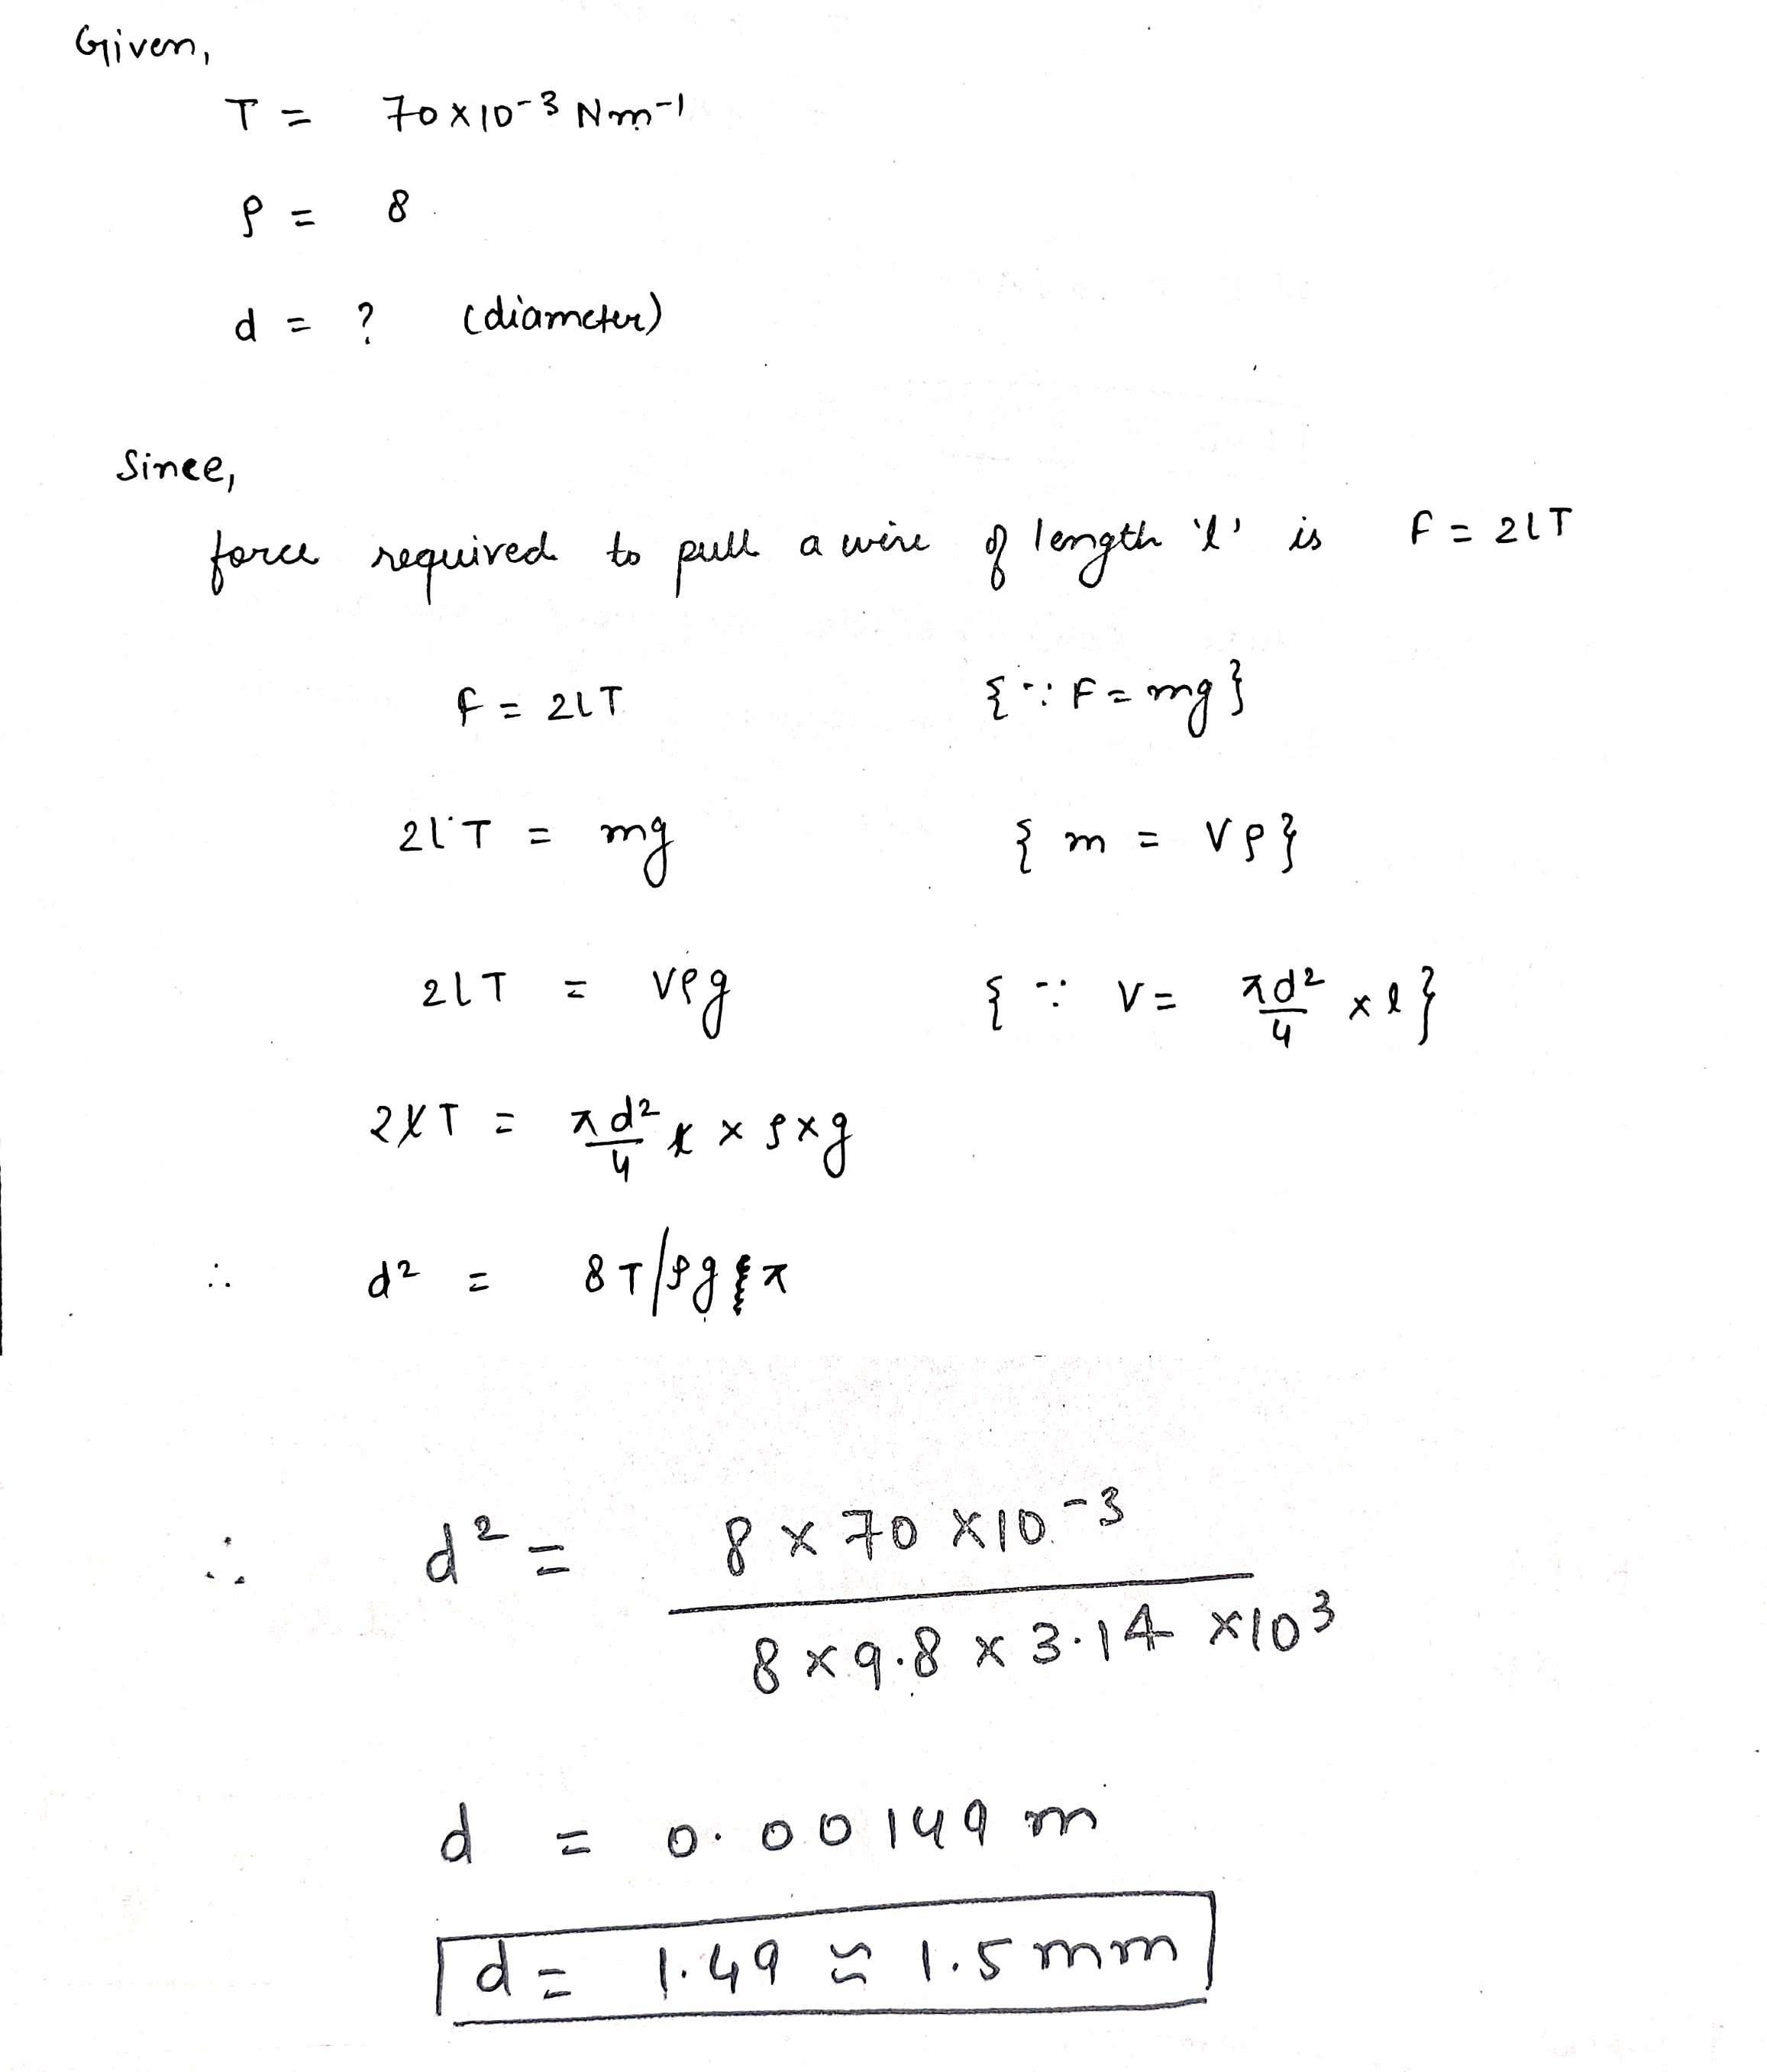 Given,
T = 70×10⁻³ Nm⁻¹
ρ = 8
d = ? (diameter)
Since,
force required to pull a wire of length 'l' is F = 2lT
F = 2lT {∵ F = mg}
2lT = mg {m = Vρ}
2lT = Vρg {∵ V = πd²/4 × l}
2lT = πd²/4 l × ρ×g
∴ d² = 8T/ρgπ
∴ d² = 8 × 70 ×10⁻³ / 8 × 9.8 × 3.14 ×10³
d = 0.00149 m
d = 1.49 ≈ 1.5 mm